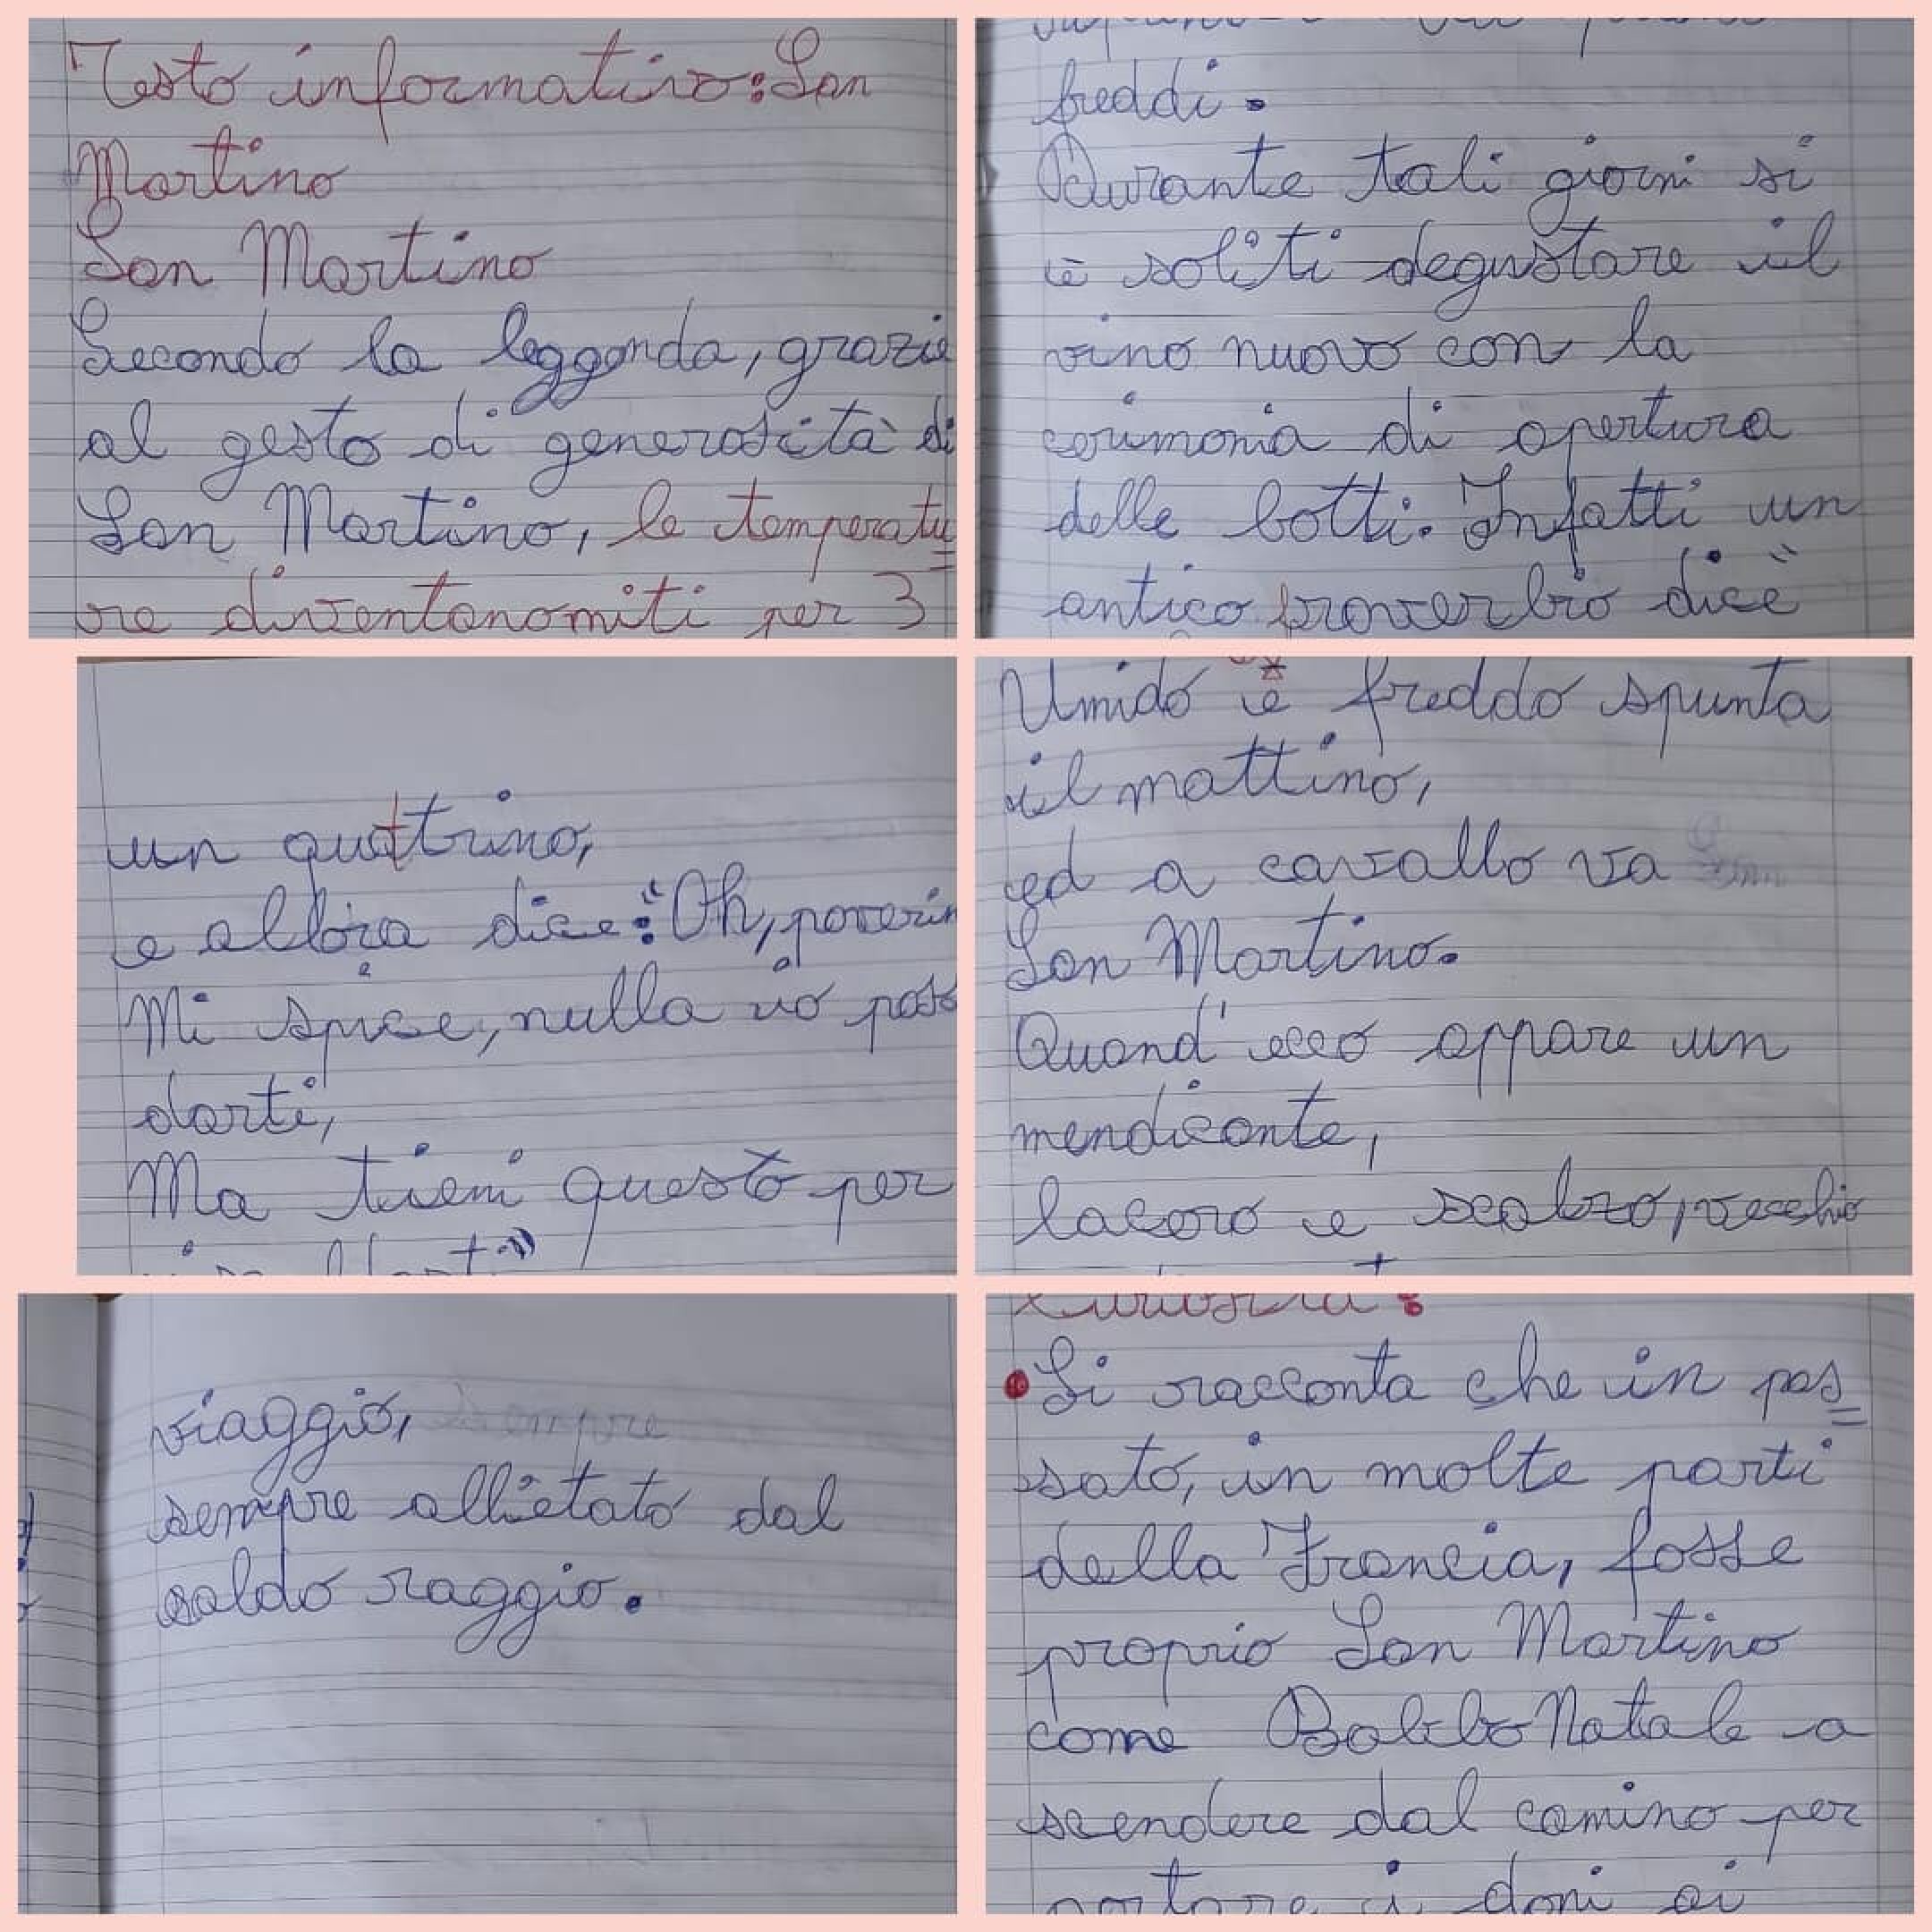 Testo informativo: San
Martino
San Martino
Secondo la leggenda, grazie
al gesto di generosità di
San Martino, le temperatu
re diventanomiti per 3
freddi.
Durante tali giorni si
è soliti degustare il
vino nuovo con la
cerimonia di apertura
delle botti. Infatti un
antico proverbio dice"
un quattrino,
e allora dice: "Oh, poverin
Mi spiace, nulla vò poss
darti,
Ma tieni questo per
Umido e freddo spunta
il mattino,
ed a cavallo va
San Martino.
Quand'ecco appare un
mendicante,
lacero e scalzo, vecchio
viaggio, sempre
sempre allietato dal
caldo raggio.
Curiosità:
• Si racconta che in pas
sato, in molte parti
della Francia, fosse
proprio San Martino
come Babbo Natale a
scendere dal camino per
portare i doni ai